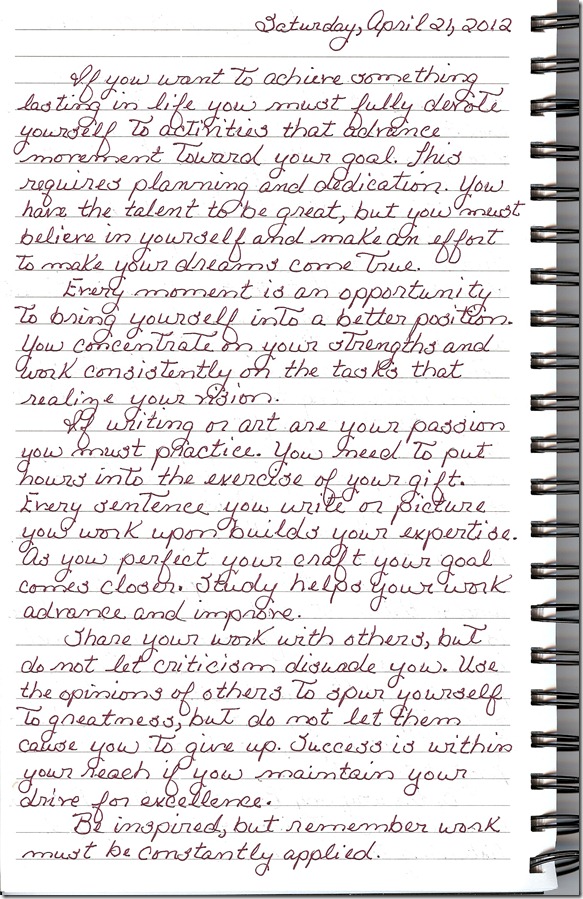 Saturday, April 21, 2012
If you want to achieve something
lasting in life you must fully devote
yourself to activities that advance
movement toward your goal. This
requires planning and dedication. You
have the talent to be great, but you must
believe in yourself and make an effort
to make your dreams come true.
Every moment is an opportunity
to bring yourself into a better position.
You concentrate on your strengths and
work consistently on the tasks that
realize your vision.
If writing or art are your passion
you must practice. You need to put
hours into the exercise of your gift.
Every sentence you write or picture
you work upon builds your expertise.
As you perfect your craft your goal
comes closer. Study helps your work
advance and improve.
Share your work with others, but
do not let criticism disuade you. Use
the opinions of others to spur yourself
to greatness, but do not let them
cause you to give up. Success is within
your reach if you maintain your
drive for excellence.
Be inspired, but remember work
must be constantly applied.